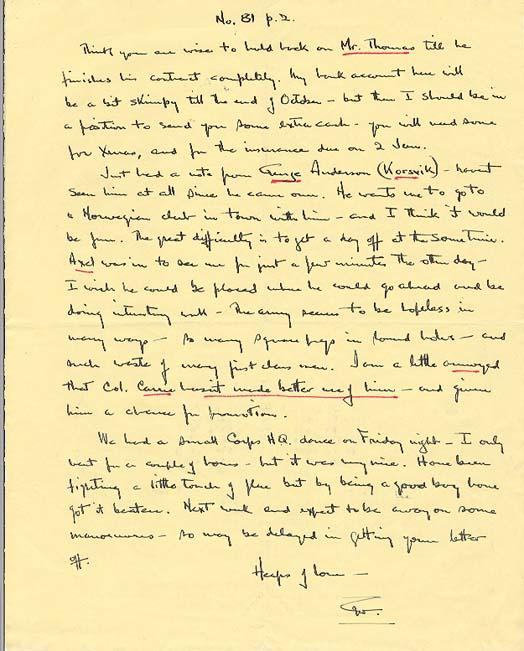 No. 81 p.2.
Think you are wise to hold back on Mr. Thomas till he
finishes his contract completely. My bank account here will
be a bit skimpy till the end of October - but then I should be in
a position to send you some extra cash - you will need some
for Xmas, and for the insurance due on 2 Jan.
Just had a note from George Anderson (Korsvik) - haven't
seen him at all since he came over. He wants me to go to
a Norwegian club in town with him - and I think it would
be fun. The great difficulty is to get a day off at the same time.
Axel was in to see me for just a few minutes the other day -
I wish he could be placed where he could go ahead and be
doing interesting work - The army seems to be hopeless in
many ways - so many square pegs in round holes - and
such waste of many first class men. I am a little annoyed
that Col. Currie hasn't made better use of him - and given
him a chance for promotion.
We had a small Corps H.Q. dance on Friday night - I only
went for a couple of hours - but it was very nice. Have been
fighting a little touch of flue but by being a good boy have
got it beaten. Next week and expect to be away on some
manoeuvres - so may be delayed in getting your letter
off.
Heaps of love -